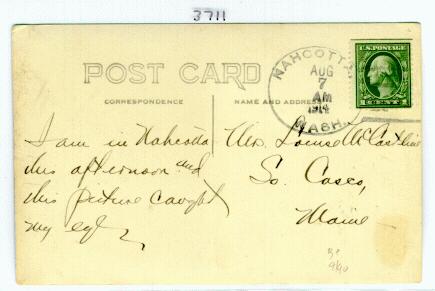 3711
POST CARD
CORRESPONDENCE
NAME AND ADDRESS
NAHCOTTA
AUG
7
AM
1914
WASH.
U.S. POSTAGE
1 CENT 1
I am in Nahcotta
this afternoon and
this picture caught
my eye
Mrs. Louise McCastline
So. Casco,
Maine